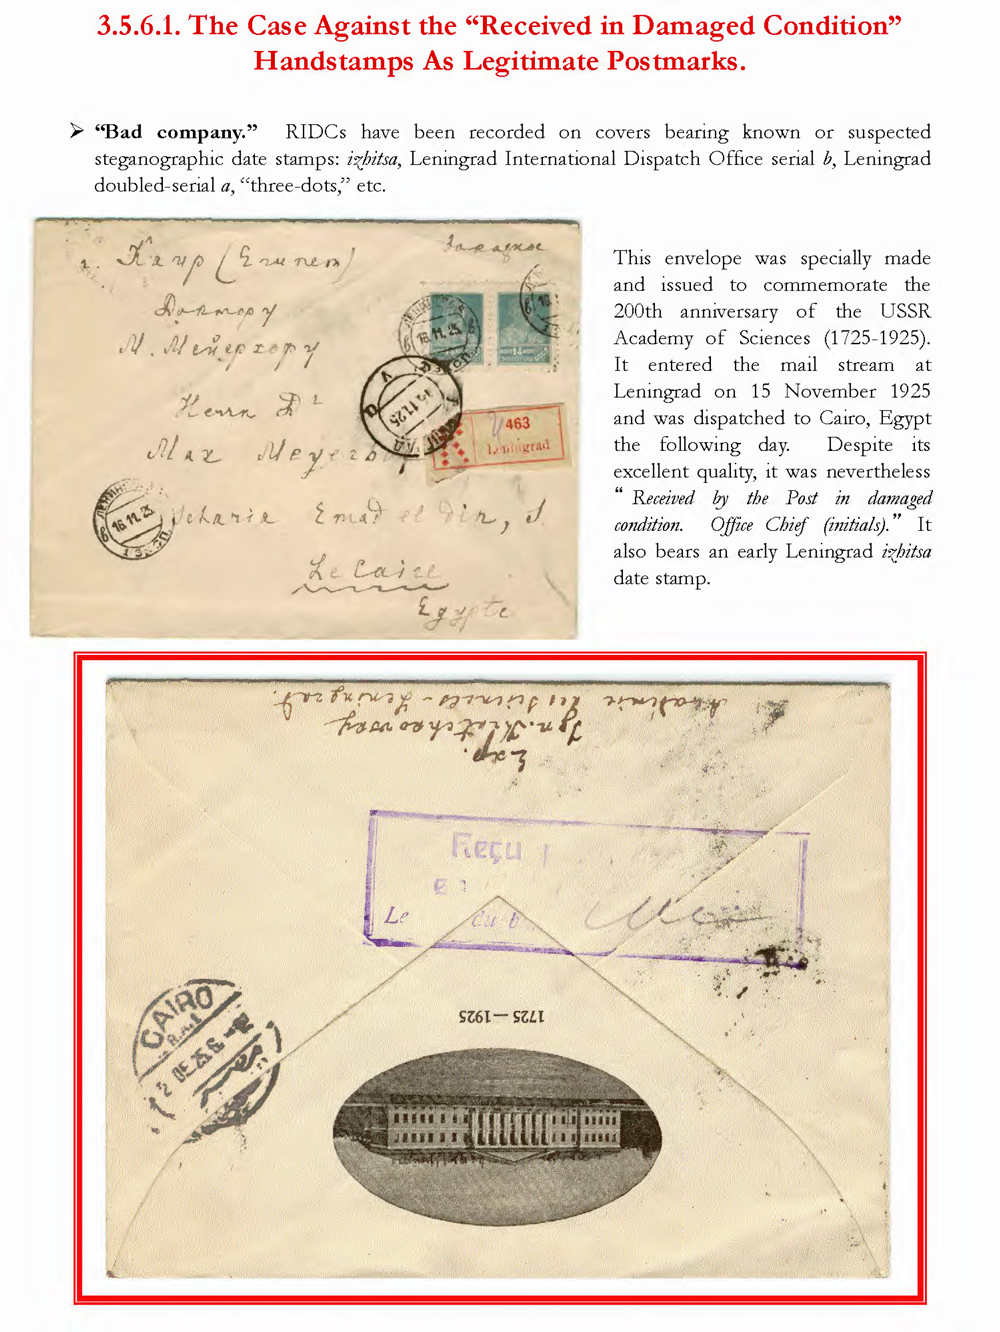 3.5.6.1. The Case Against the “Received in Damaged Condition”
Handstamps As Legitimate Postmarks.
➢ “Bad company.” RIDCs have been recorded on covers bearing known or suspected
steganographic date stamps: izhitsa, Leningrad International Dispatch Office serial b, Leningrad
doubled-serial a, “three-dots,” etc.
This envelope was specially made
and issued to commemorate the
200th anniversary of the USSR
Academy of Sciences (1725-1925).
It entered the mail stream at
Leningrad on 15 November 1925
and was dispatched to Cairo, Egypt
the following day. Despite its
excellent quality, it was nevertheless
“ Received by the Post in damaged
condition. Office Chief (initials).” It
also bears an early Leningrad izhitsa
date stamp.
Заказное
г. Каир (Египет)
Доктору
М. Мейергофу
Herrn Dr
Max
Emad el din,
Le Caire
Egypte
16.11.25
463
Leningrad
16.11.25
Leningrad.
Exp.
Reçu
Le du b
CAIRO
DE.25
1725—1925